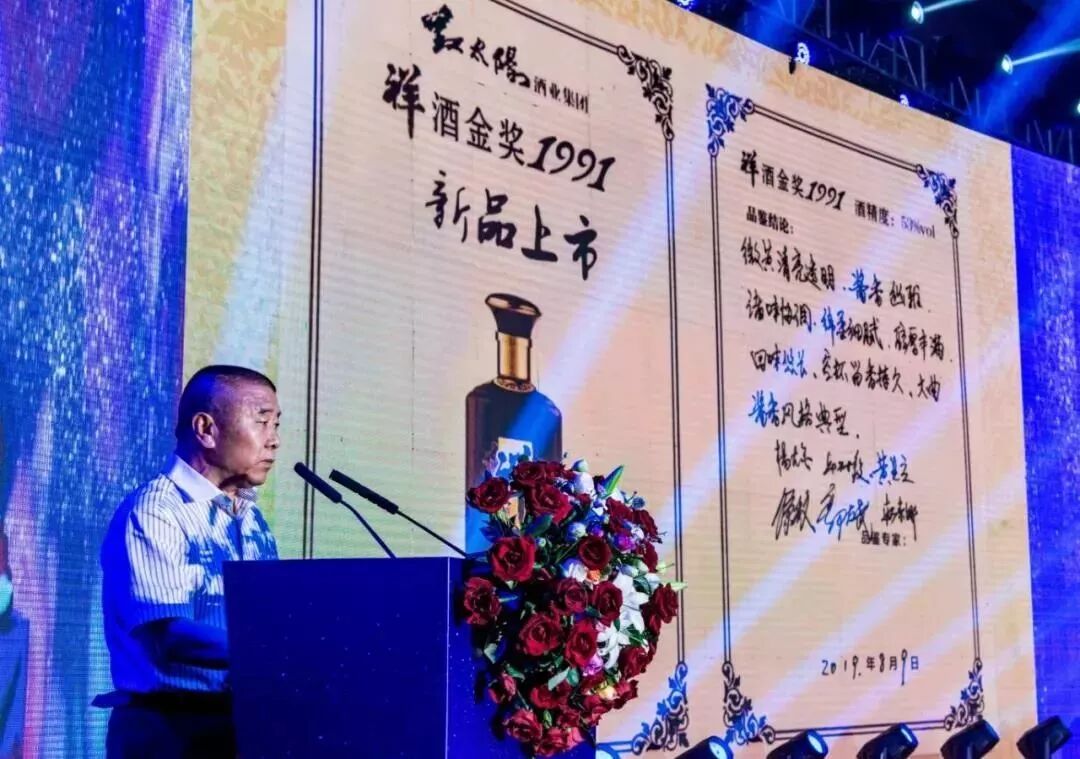 红太阳酒业集团
祥酒金奖1991
新品上市
祥酒金奖1991 酒精度：53%vol
品鉴结论：
微黄清亮透明、酱香幽雅、
诸味协调、细腻、醇厚丰满、
回味悠长、空杯留香持久、大曲
酱香风格典型。
品鉴专家：
2019年8月9日